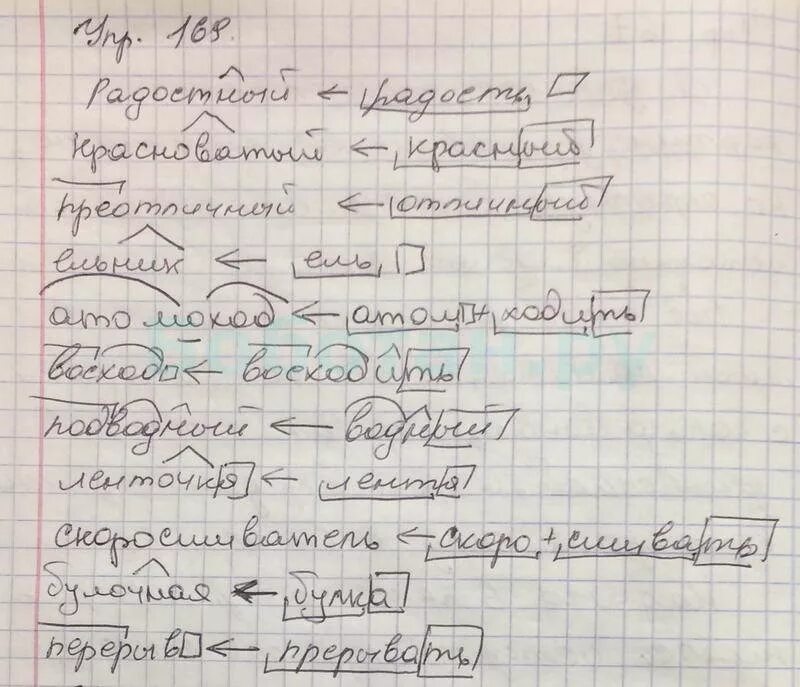 Упр. 169.
Радостный ← радость,
Красноватый ← красный
преотличный ← отличный
ельник ← ель,
атомоход ← атом + ходить
восход ← восходить
подводный ← водный
ленточкя ← лентя
скоросшиватель ← скоро + сшивать
булочная ← булка
перерыв ← прерывать